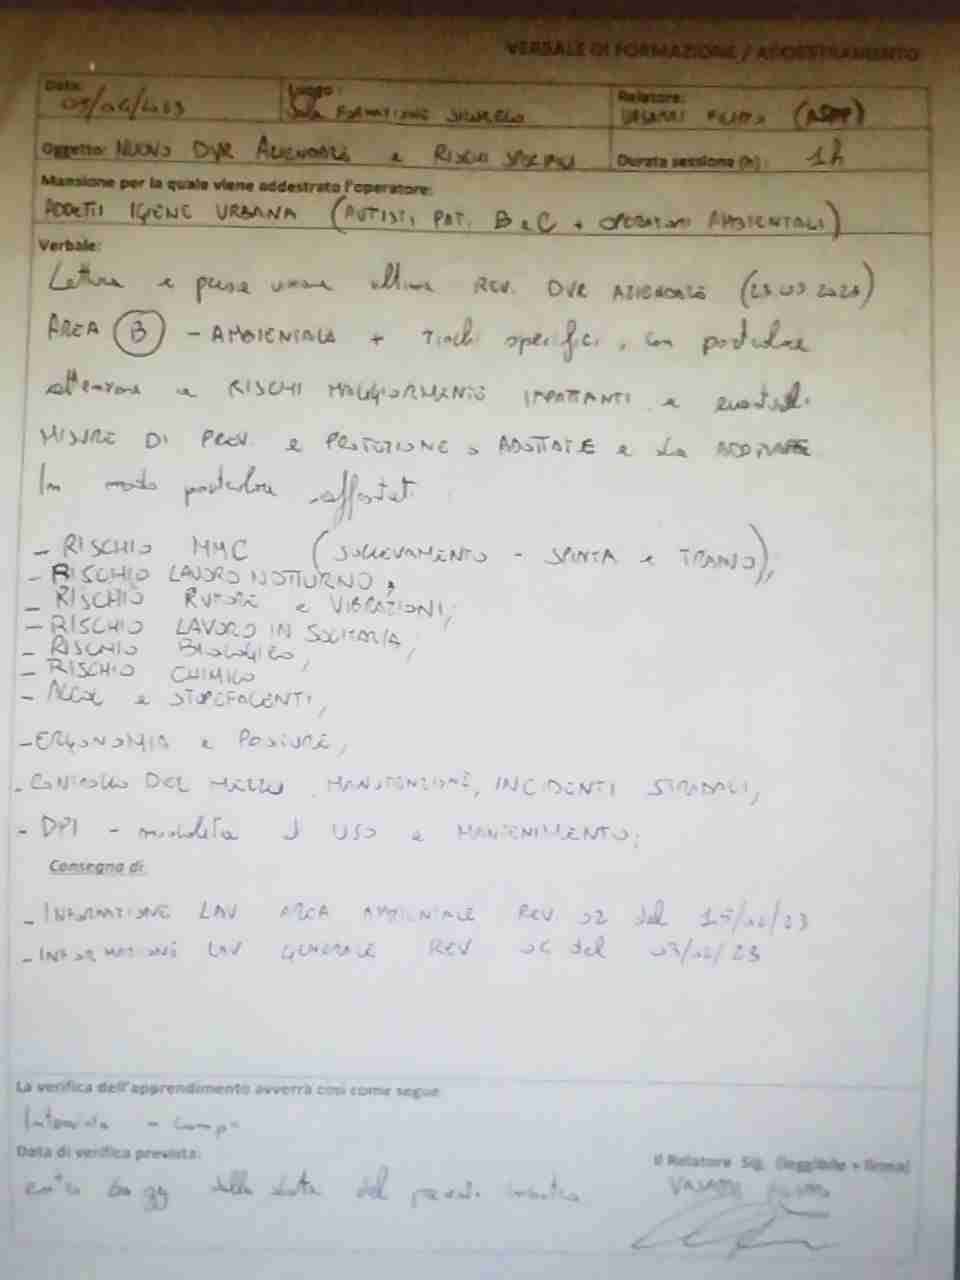 VERBALE DI FORMAZIONE / ADDESTRAMENTO
Data: Luogo: Relatore:
SALA FORMAZIONE (ASPP)
Oggetto: NUOVO DVR AZIENDALE e RISCHI SPECIALI Durata sessione (h): 1h
Mansione per la quale viene addestrato l'operatore:
ADDETTI IGIENE URBANA (AUTISTI, PAT. B e C + OPERATORI AMBIENTALI)
Verbale:
Lettura e presa visione ultima REV. DVR AZIENDALE
AREA B - AMBIENTALE + rischi specifici, con particolare
attenzione a RISCHI MAGGIORMENTE IMPATTANTI e eventuali
MISURE DI PREV. e PROTEZIONE ADOTTATE e da
In modo particolare affrontati:
- RISCHIO MMC (SOLLEVAMENTO - SPINTA e TRAINO),
- RISCHIO LAVORO NOTTURNO,
- RISCHIO RUMORE e VIBRAZIONI,
- RISCHIO LAVORO IN SOLITARIA,
- RISCHIO BIOLOGICO,
- RISCHIO CHIMICO
- ALCOL e STUPEFACENTI,
- ERGONOMIA e POSTURE,
- CONTROLLO DEL MEZZO, MANUTENZIONE, INCIDENTI STRADALI,
- DPI - modalità d'USO e MANTENIMENTO;
Consegna di:
- INFORMAZIONE LAV AREA AMBIENTALE REV. 02 del
- INFORMAZIONE LAV GENERALE REV del
La verifica dell'apprendimento avverrà così come segue
Intervista
Data di verifica prevista: Il Relatore Sig. (leggibile + firma)
entro 60 gg dalla data del